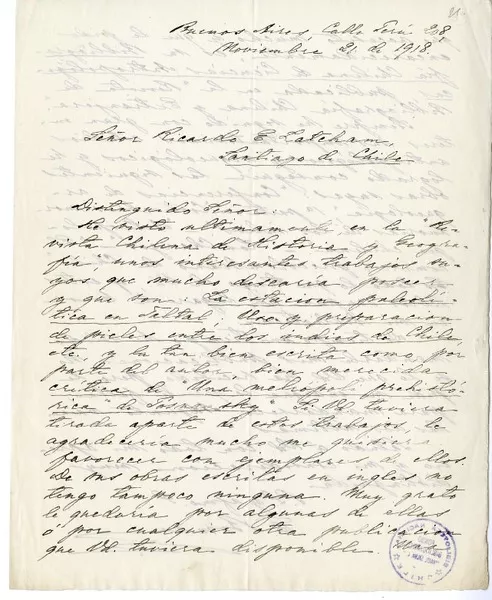 Buenos Aires, Calle Perú 208,
Noviembre 21 de 1918.
Señor Ricardo E. Latcham,
Santiago de Chile
Distinguido Señor:
He visto ultimamente, en la "Re-
vista Chilena de Historia y Geogra-
fía", unos interesantes trabajos su-
yos que mucho desearía poseer
y que son: La estacion paleolí-
tica en Taltal, Uso y preparacion
de pieles entre los indios de Chile,
etc, y la tan bien escrita como, por
parte del autor, bien merecida
critica de "Una metropoli prehistó-
rica" de Posnansky". Si Ud. tuviera
tirada aparte de estos trabajos, le
agradeceria mucho me quisiera
favorecer con ejemplares de ellos.
De sus obras escritas en ingles no
tengo tampoco ninguna. Muy grato
le quedaria por algunas de ellas
ó por cualquier otra publicacion
que Ud. tuviera disponible.